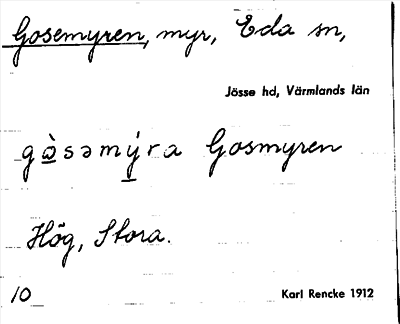 Gosemyren, myr, Eda sn,
Jösse hd, Värmlands län
gɷ̀səmýra Gosmyren
Hög, Stora.
10
Karl Rencke 1912